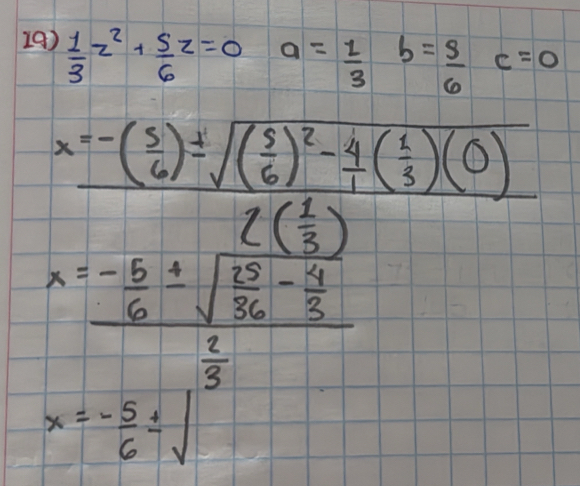 19) 1/3 z² + 5/6 z = 0 a = 1/3 b = 5/6 c = 0
x = -(5/6) ± √((5/6)² - 4/1 (1/3)(0))
2(1/3)
x = -5/6 ± √(25/36 - 4/3)
2/3
x = -5/6 ± √